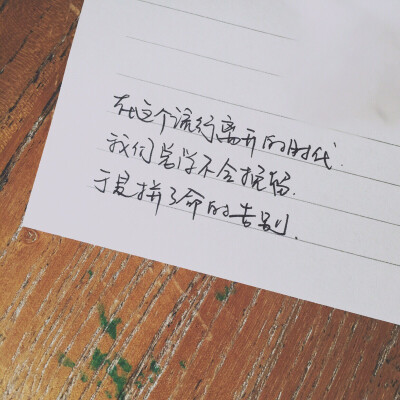 在这个流行离开的时代.
我们总学不会挽留.
于是拼了命的告别.